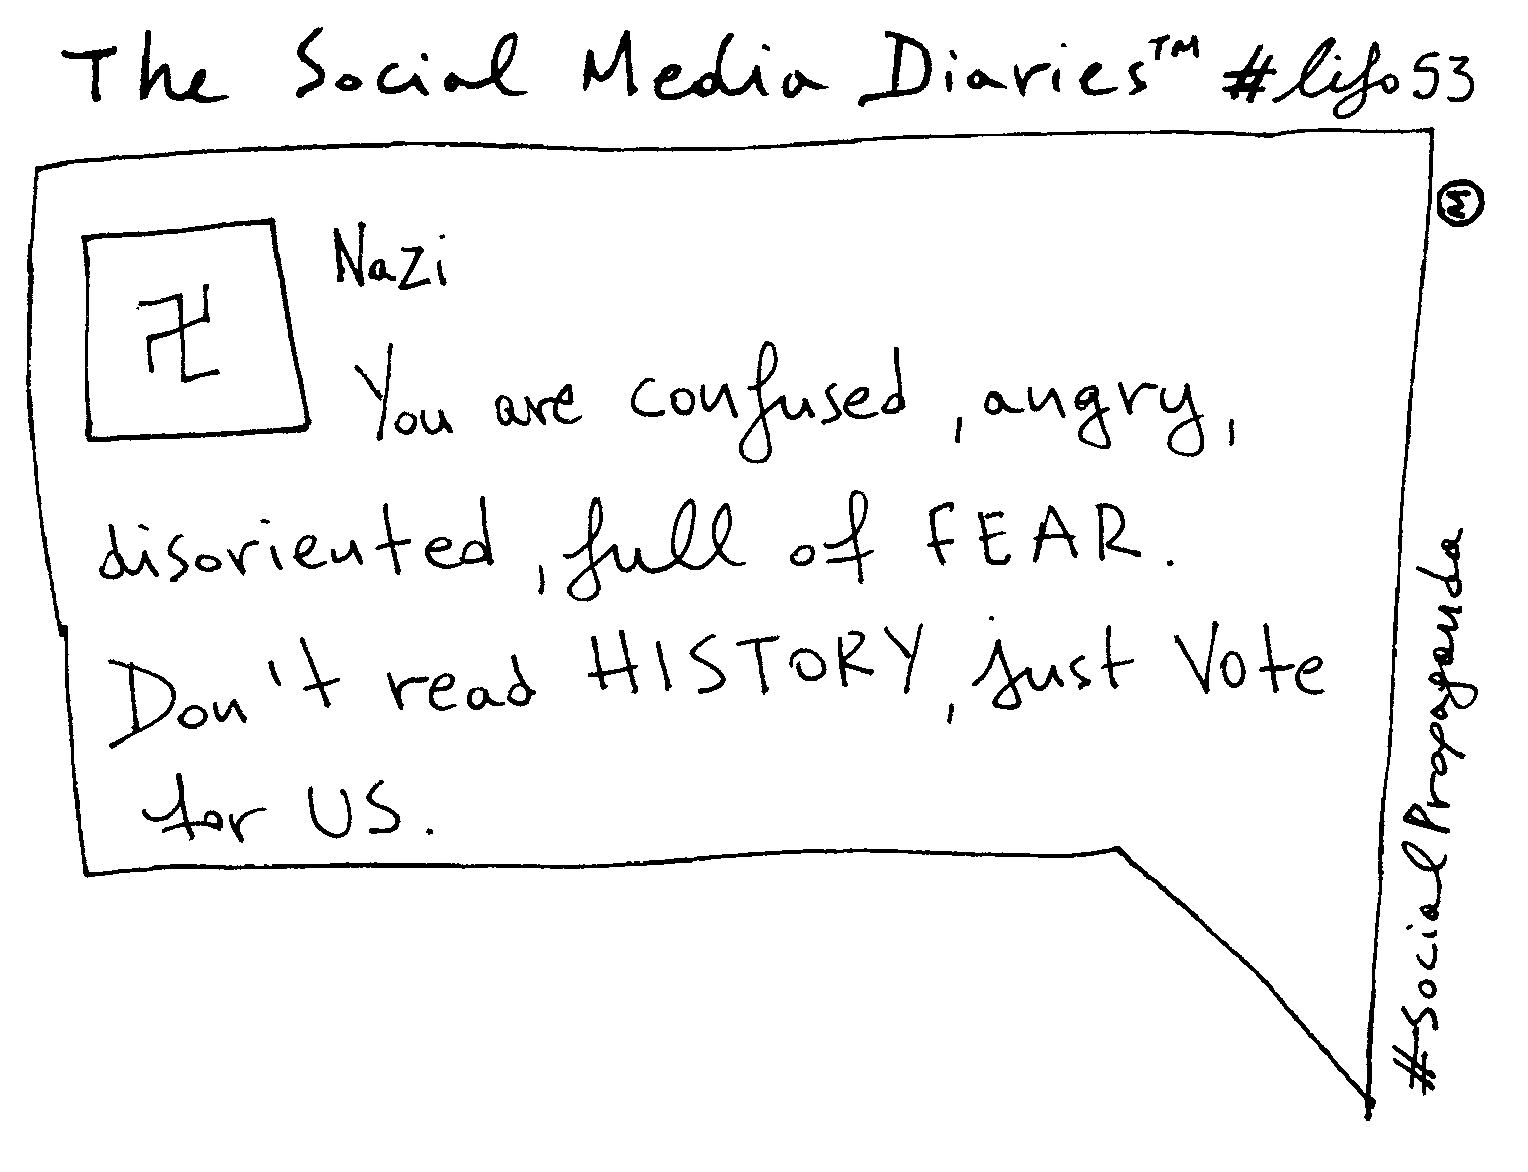 The Social Media Diaries™ #lifo53
M
Nazi
You are confused, angry,
disoriented, full of FEAR.
Don't read HISTORY, just Vote
for US.
#socialPropaganda